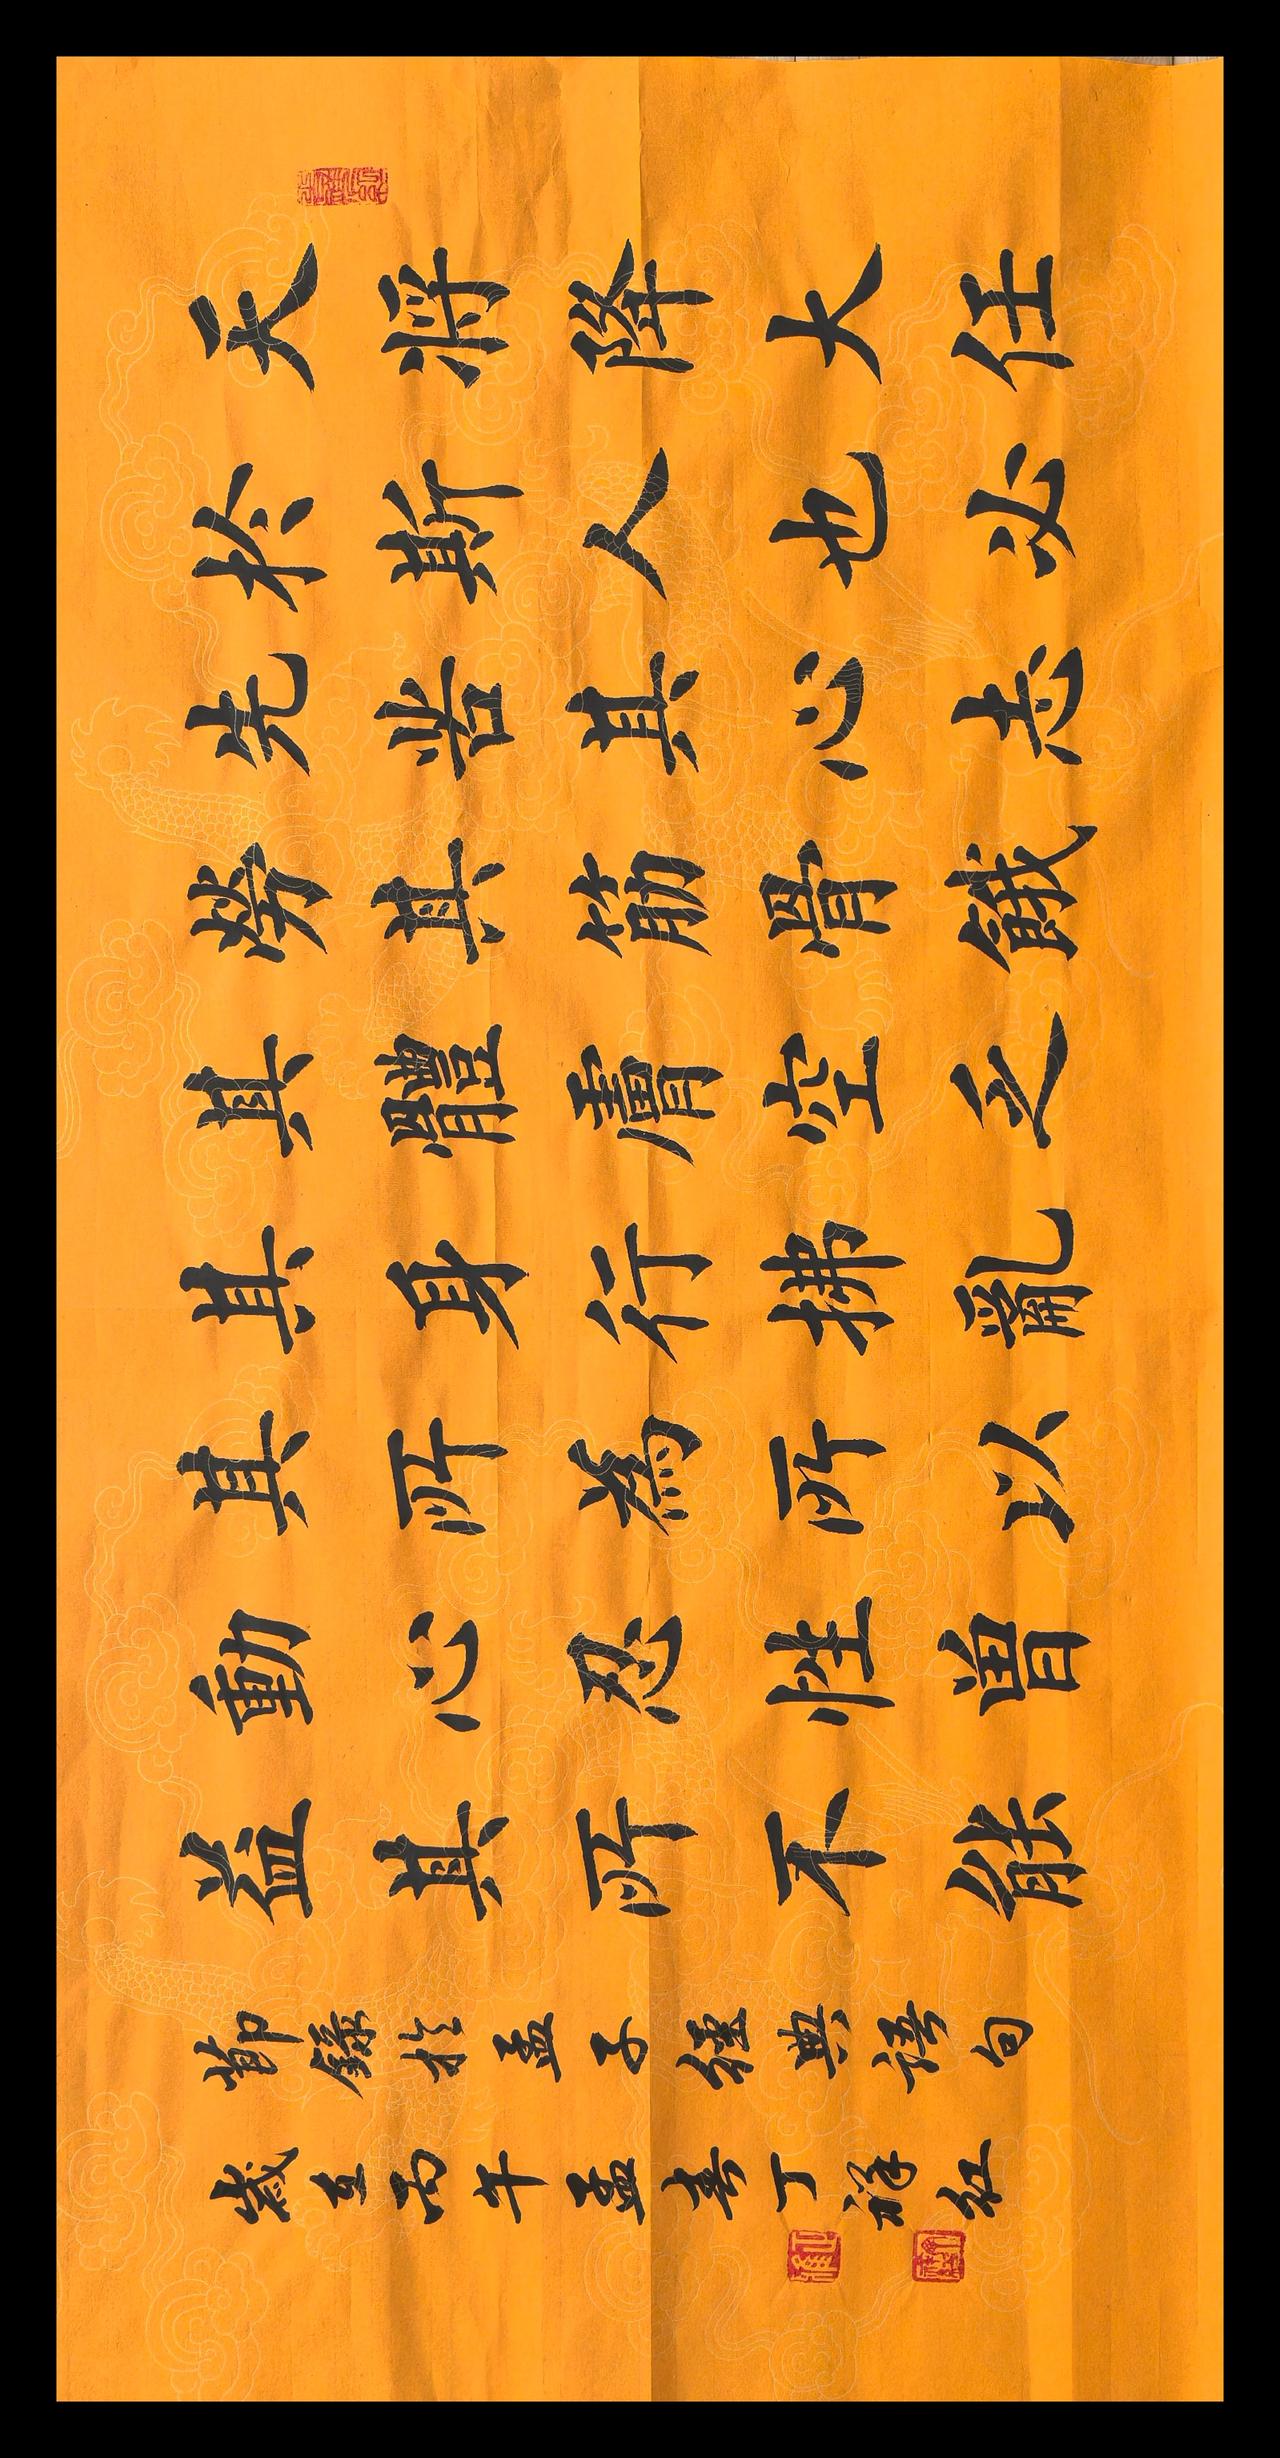 天將降大任
於斯人也必
先苦其心志
勞其筋骨餓
其體膚空乏
其身行拂亂
其所為所以
動心忍性曾
益其所不能
節錄於孟子經典語句
歲在丙午孟春丁紅